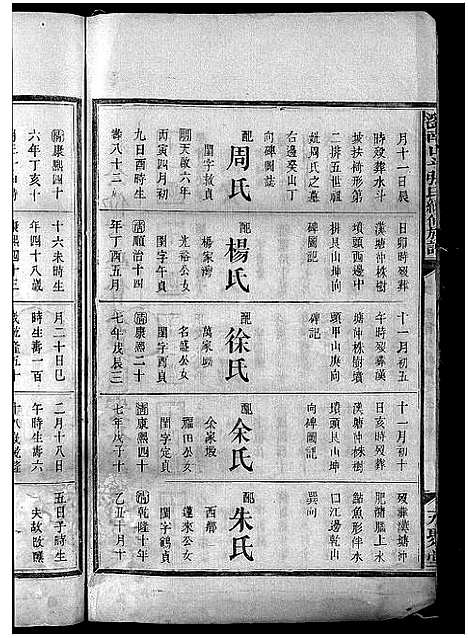 月十一日辰
時殁葬水斗
坡扶椅形第
二排五世祖
妣周氏之墓
右邊癸山丁
向碑圖誌
配
周氏
閨字淑貞
明天啟六年
丙寅四月初
九日酉時生
壽八十三
清康熙四十
六年丁亥十
日卯時殁葬
漢塘沖株樹
墳頭西邊中
排艮山坤向
碑記
配
楊氏
楊家灣
光裕公女
閨字午貞
清順治十四
年丁酉五月
十六未時生
年四十八歲
康熙四十三
十一月初五
午時殁葬漢
塘沖株樹墳
頭甲山庚向
碑記
配
徐氏
萬家塅
名盛公女
閨字酉貞
清康熙二十
七年戊辰三
月二十日巳
時生壽一百
歲乾隆五十
十一月初十
日亥時殁葬
漢塘沖株樹
墳頭艮山坤
向碑圖記
配
余氏
余家塅
耀田公女
閨字定貞
清康熙四十
七年戊子十
二月十八日
午時生壽六
十八歲乾隆
殁葬漢塘沖
肥蒲腦上水
鯰魚形伴水
口江邊乾山
巽向
配
朱氏
西鄉
蓮來公女
閨字鶴貞
清乾隆十年
乙丑十月十
五日子時生
失故改醮